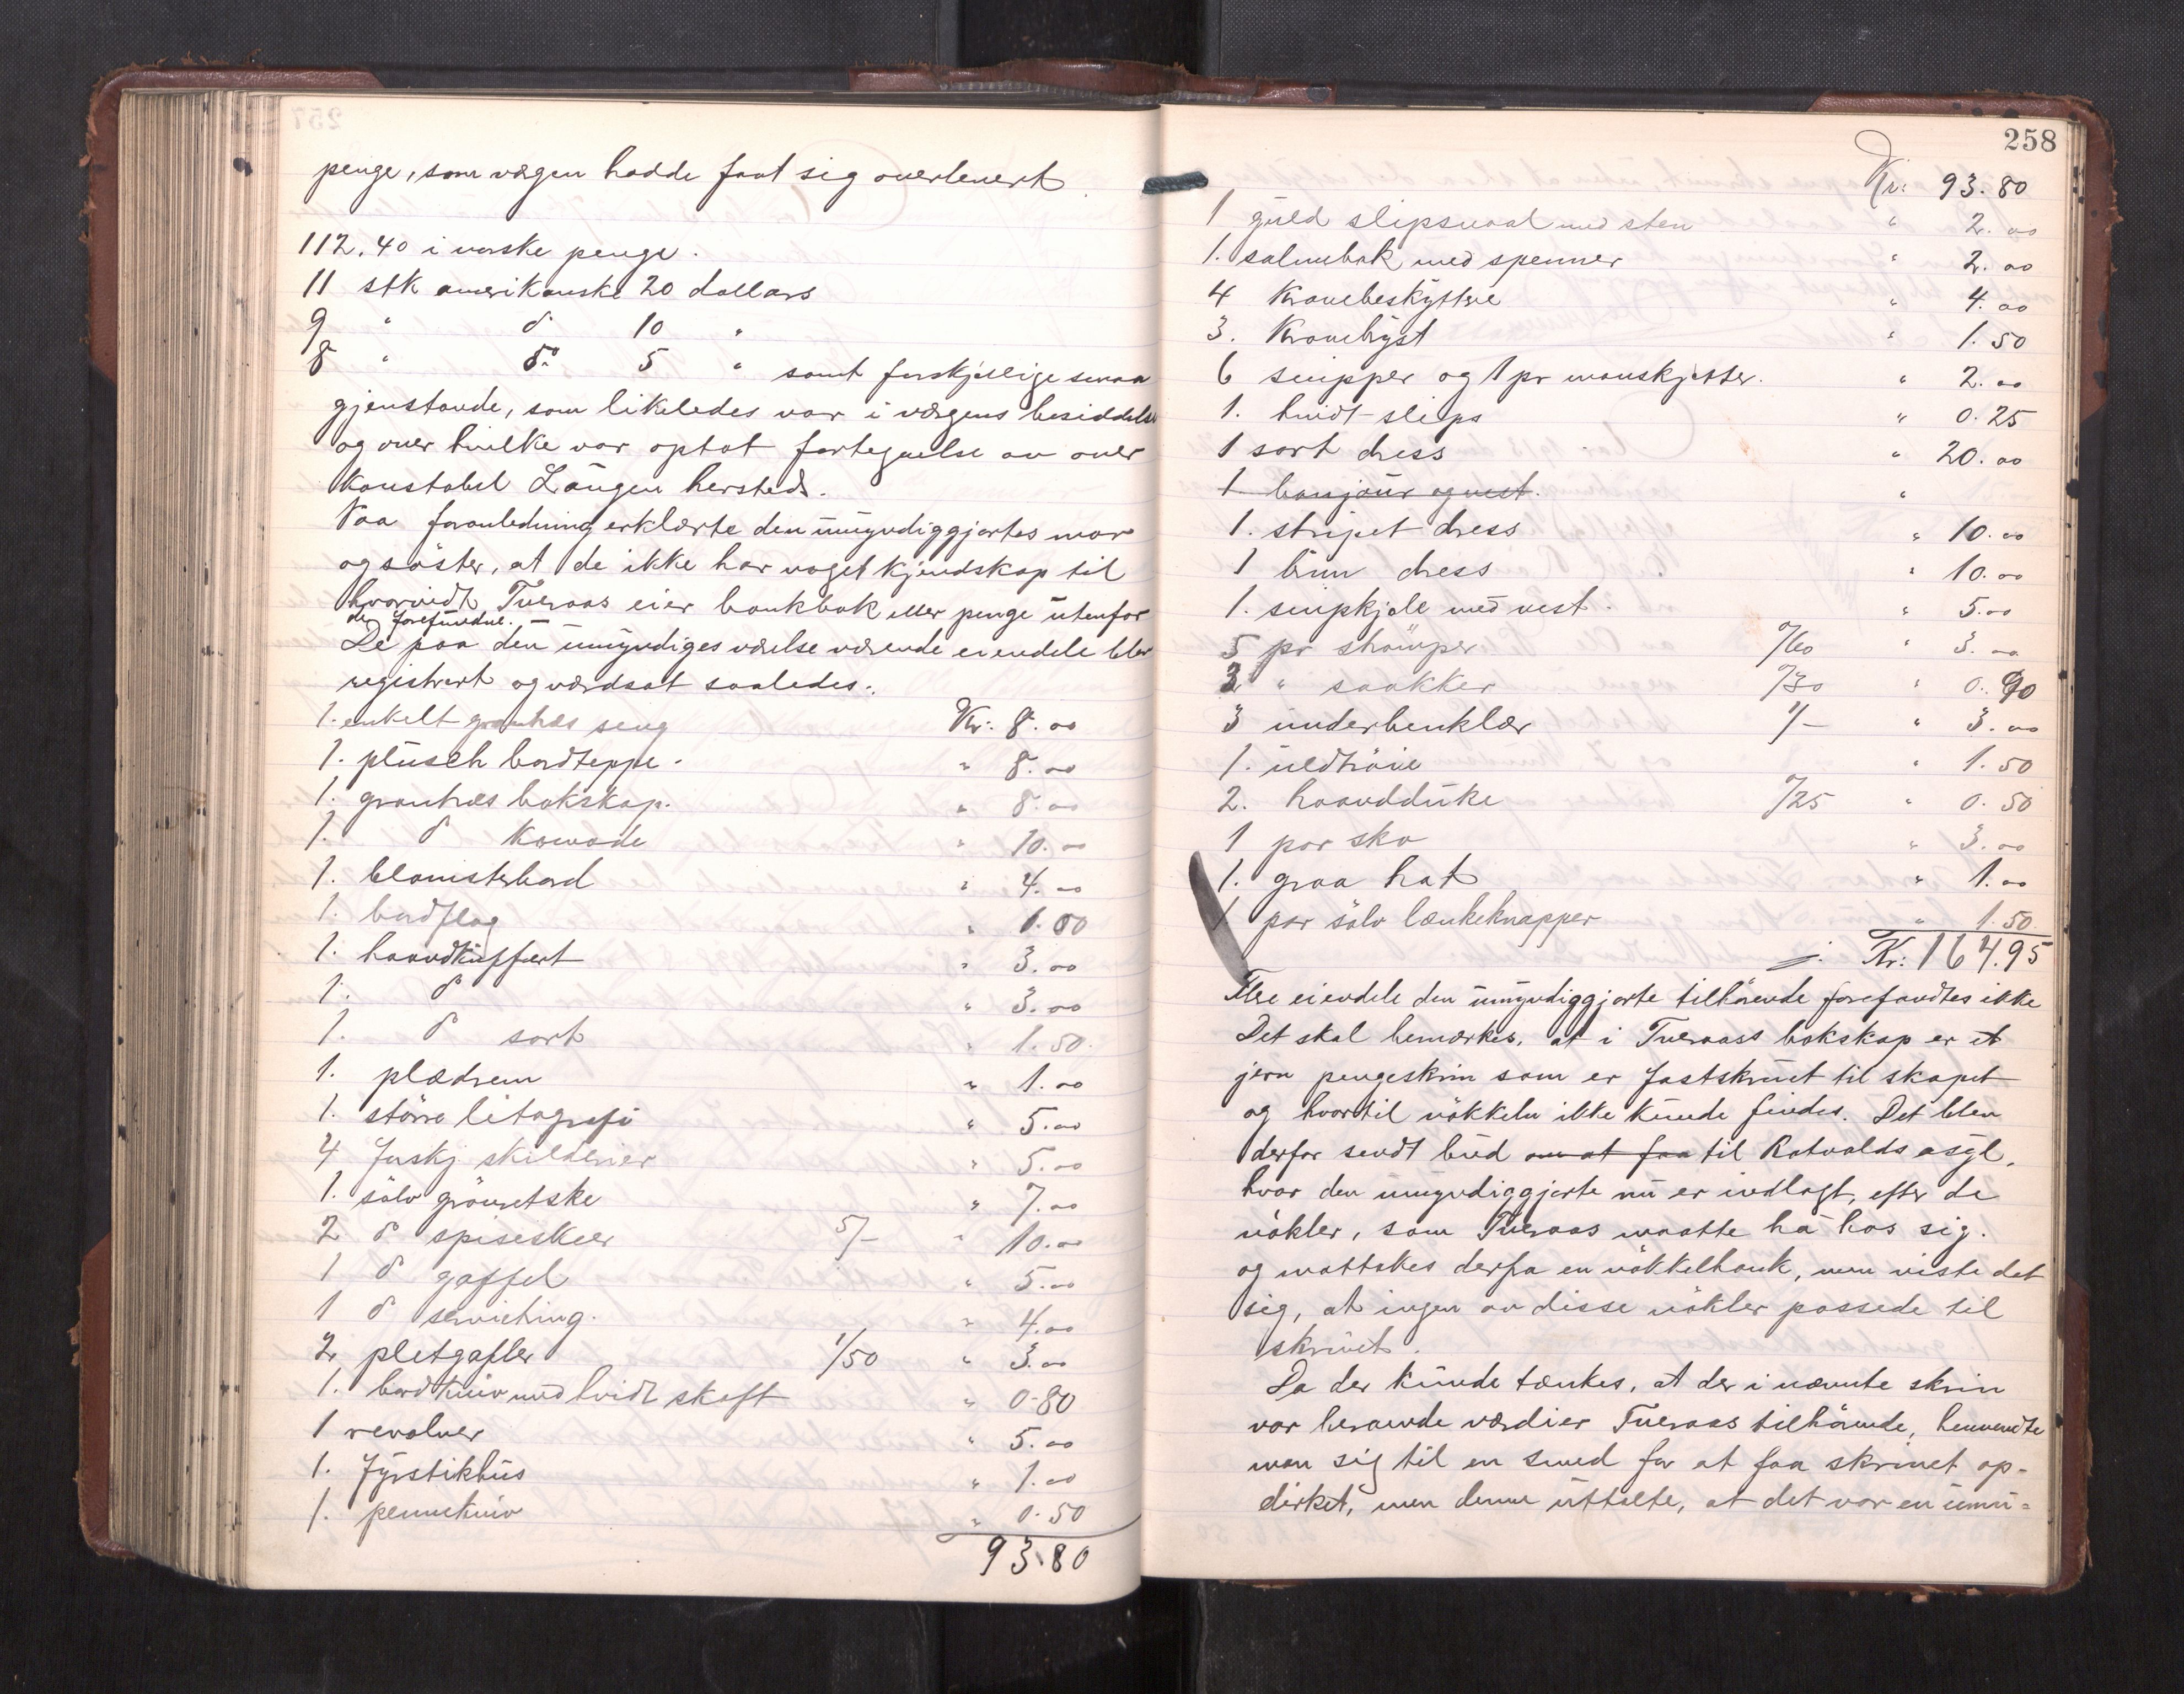 penge, som vægen hadde faat sig overlevert
112.40 i norske penge.
11 stk amerikanske 20 dollars
9 " do 10 "
8 " do 5 " samt forskjellige smaa
gjenstande, som likeledes var i værgens besiddelse
og over hvilke var optat fortegnelse av over
konstabel Langen hersteds.
Paa foranledning erklærte den umyndiggjortes mor
og søster, at de ikke har noget kjendskap til
hvorvidt Tveraas eier bankbok eller penge utenfor
de forefundne.
De paa den umyndiges værelse værende eiendele blev
registrert og værdsat saaledes:
1. enkelt grantræs seng Kr: 8.00
1. plüsch bordteppe. " 8.00
1. grantræs bokskap. " 8.00
1. do komode " 10.00
1. blomsterbord " 4.00
1. bordflag " 1.00
1. haandkuffert " 3.00
1. do " 3.00
1. do sort " 1.50
1. plædrem " 1.00
1. större litografi " 5.00
4 forskj skilderier " 5.00
1. sölv grönretske " 7.00
2 do spiseskeer 5/- " 10.00
1 do gaffel " 5.00
1 do servietring. " 4.00
2 pletgafler 1/50 " 3.00
1. bordkniv med hvidt skaft " 0.80
1 revolver " 5.00
1. fyrstikhus " 1.00
1. pennekniv " 0.50
93.80
258
Kr: 93.80
1 guld slipsnaal med sten " 2.00
1. salmebok med spenner " 2.00
4 Kravebeskyttere " 4.00
3. Kravebryst " 1.50
6 snipper og 1 pr manskjetter. " 2.00
1. hvidt slips " 0.25
1 sort dress " 20.00
1 bonjour og vest. "
1. stripet dress " 10.00
1 brun dress " 10.00
1. snipkjole med vest. " 5.00
5 pr strömper 0/60 " 3.00
3 " saakker 0/30 " 0.90
3 underbenklær 1/- " 3.00
1. uldtröie " 1.50
2. haandduke 0/25 " 0.50
1 par sko " 3.00
1. graa hat " 1.00
1 par sölv lænkeknapper " 1.50
Kr: 164.95
Flere eiendele den umyndiggjorte tilhörende forefandtes ikke
Det skal bemærkes, at i Tveraass bokskap er et
jern pengeskrin som er fastskruet til skapet
og hvortil nökkeln ikke kunde findes. Det blev
derfor sendt bud om at faa til Rotvolds asyl,
hvor den umyndiggjorte nu er indlagt, efter de
nökler, som Tveraas maatte ha hos sig.
og mottokes derfra en nökkelhank, men viste det
sig, at ingen av disse nökler passede til
skrinet.
Da der kunde tænkes, at der i nævnte skrin
var beroende værdier Tveraas tilhörende, henvendte
man sig til en smed for at faa skrinet op-
dirket, men denne uttalte, at det var en umu-